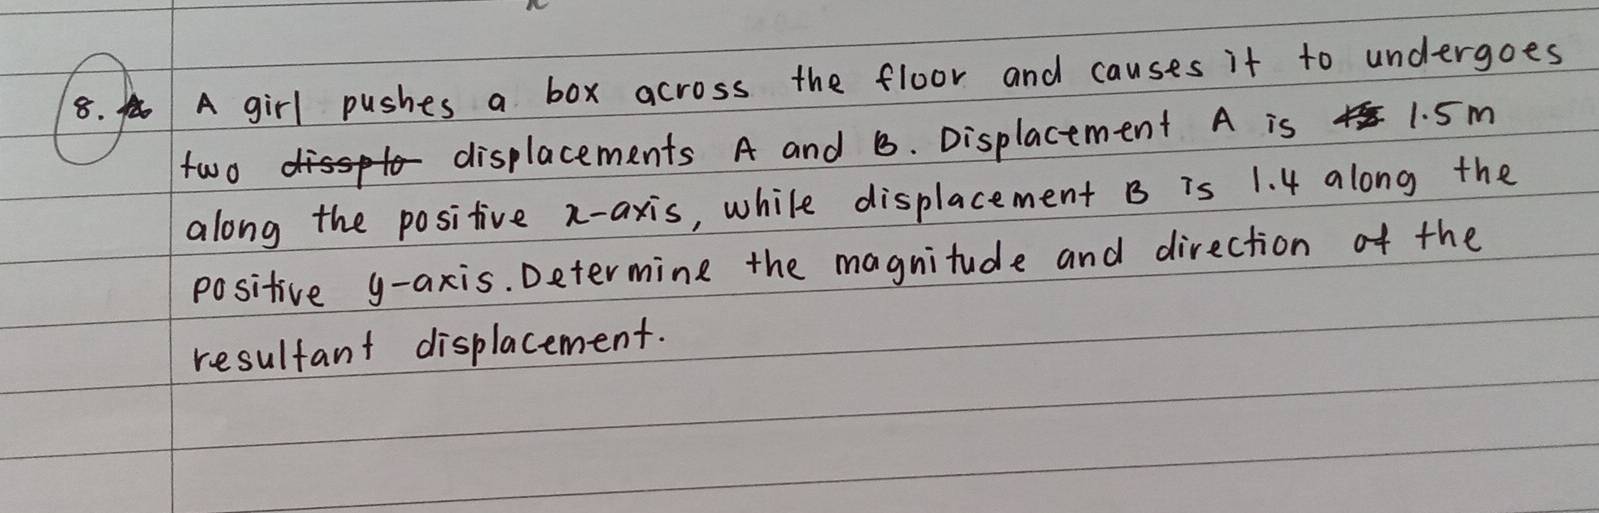 8. A girl pushes a box across the floor and causes it to undergoes
two displacements A and B. Displacement A is 1.5m
along the positive x-axis, while displacement B is 1.4 along the
positive y-axis. Determine the magnitude and direction of the
resultant displacement.